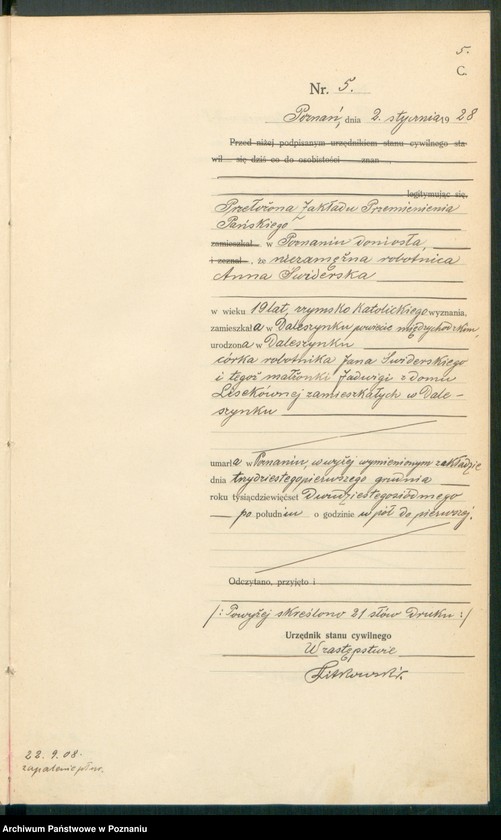 5.
C.
Nr. 5.
Poznań, dnia 2. stycznia 19 28
Przed niżej podpisanym urzędnikiem stanu cywilnego sta-
wił się dziś co do osobistości znan
legitymując się,
Przełożona Zakładu Przemienienia
Pańskiego
zamieszkał w Poznaniu doniosła,
i zeznał, że niezamężna robotnica
Anna Swiderska
w wieku 19 lat, rzymsko katolickiego wyznania,
zamieszkała w Daleszynku powiecie międzychódzkim,
urodzona w Daleszynku
córka robotnika Jana Swiderskiego
i tegoż małżonki Jadwigi z domu
zamieszkałych w Dale-
szynku
umarła w Poznaniu, w wyżej wymienionym zakładzie
dnia trzydziestego pierwszego grudnia
roku tysiącdziewięćset dwudziestegosiódmego
po południu o godzinie w pół do pierwszej.
Odczytano, przyjęto i
/: Powyżej skreślono 21 słów druku :/
Urzędnik stanu cywilnego
W zastępstwie
22. 9. 08.
zapalenie płuc.
Archiwum Państwowe w Poznaniu